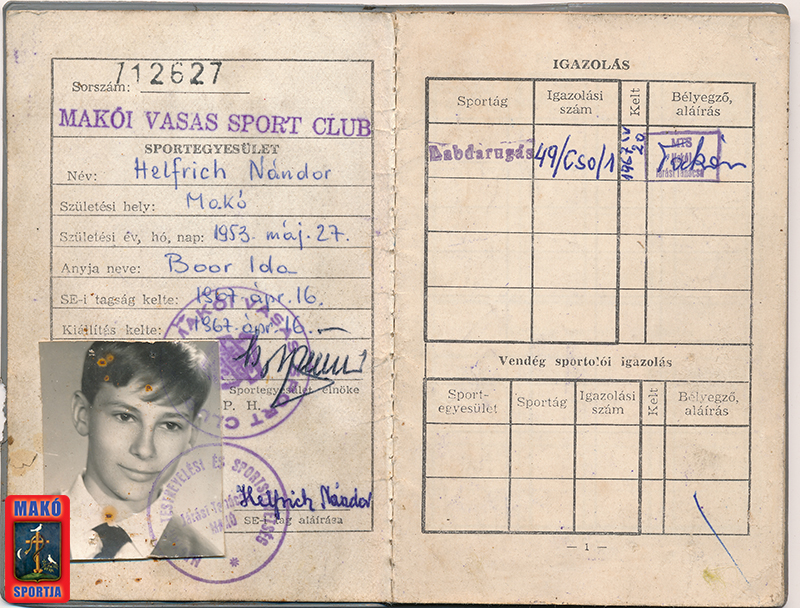 Sorszám: 712627
MAKÓI VASAS SPORT CLUB
SPORTEGYESÜLET
Név: Helfrich Nándor
Születési hely: Makó
Születési év, hó, nap: 1953. máj. 27.
Anyja neve: Boor Ida
SE-i tagság kelte: 1967. ápr. 16.
Kiállítás kelte: 1967. ápr. 16.
MAKÓI VASAS SPORT CLUB
Sportegyesület elnöke
P. H.
TESTNEVELÉSI ÉS SPORTSZÖVETSÉG
Járási Tanácsa
MAKÓ
Helfrich Nándor
SE-i tag aláírása
MAKÓ
SPORTJA
IGAZOLÁS
Sportág
Igazolási szám
Kelt
Bélyegző, aláírás
Labdarugás
49/Cso/1
1967. IV. 20.
MTS
Makói
Járási Tanácsa
Vendég sportolói igazolás
Sport-egyesület
Sportág
Igazolási szám
Kelt
Bélyegző, aláírás
— 1 —